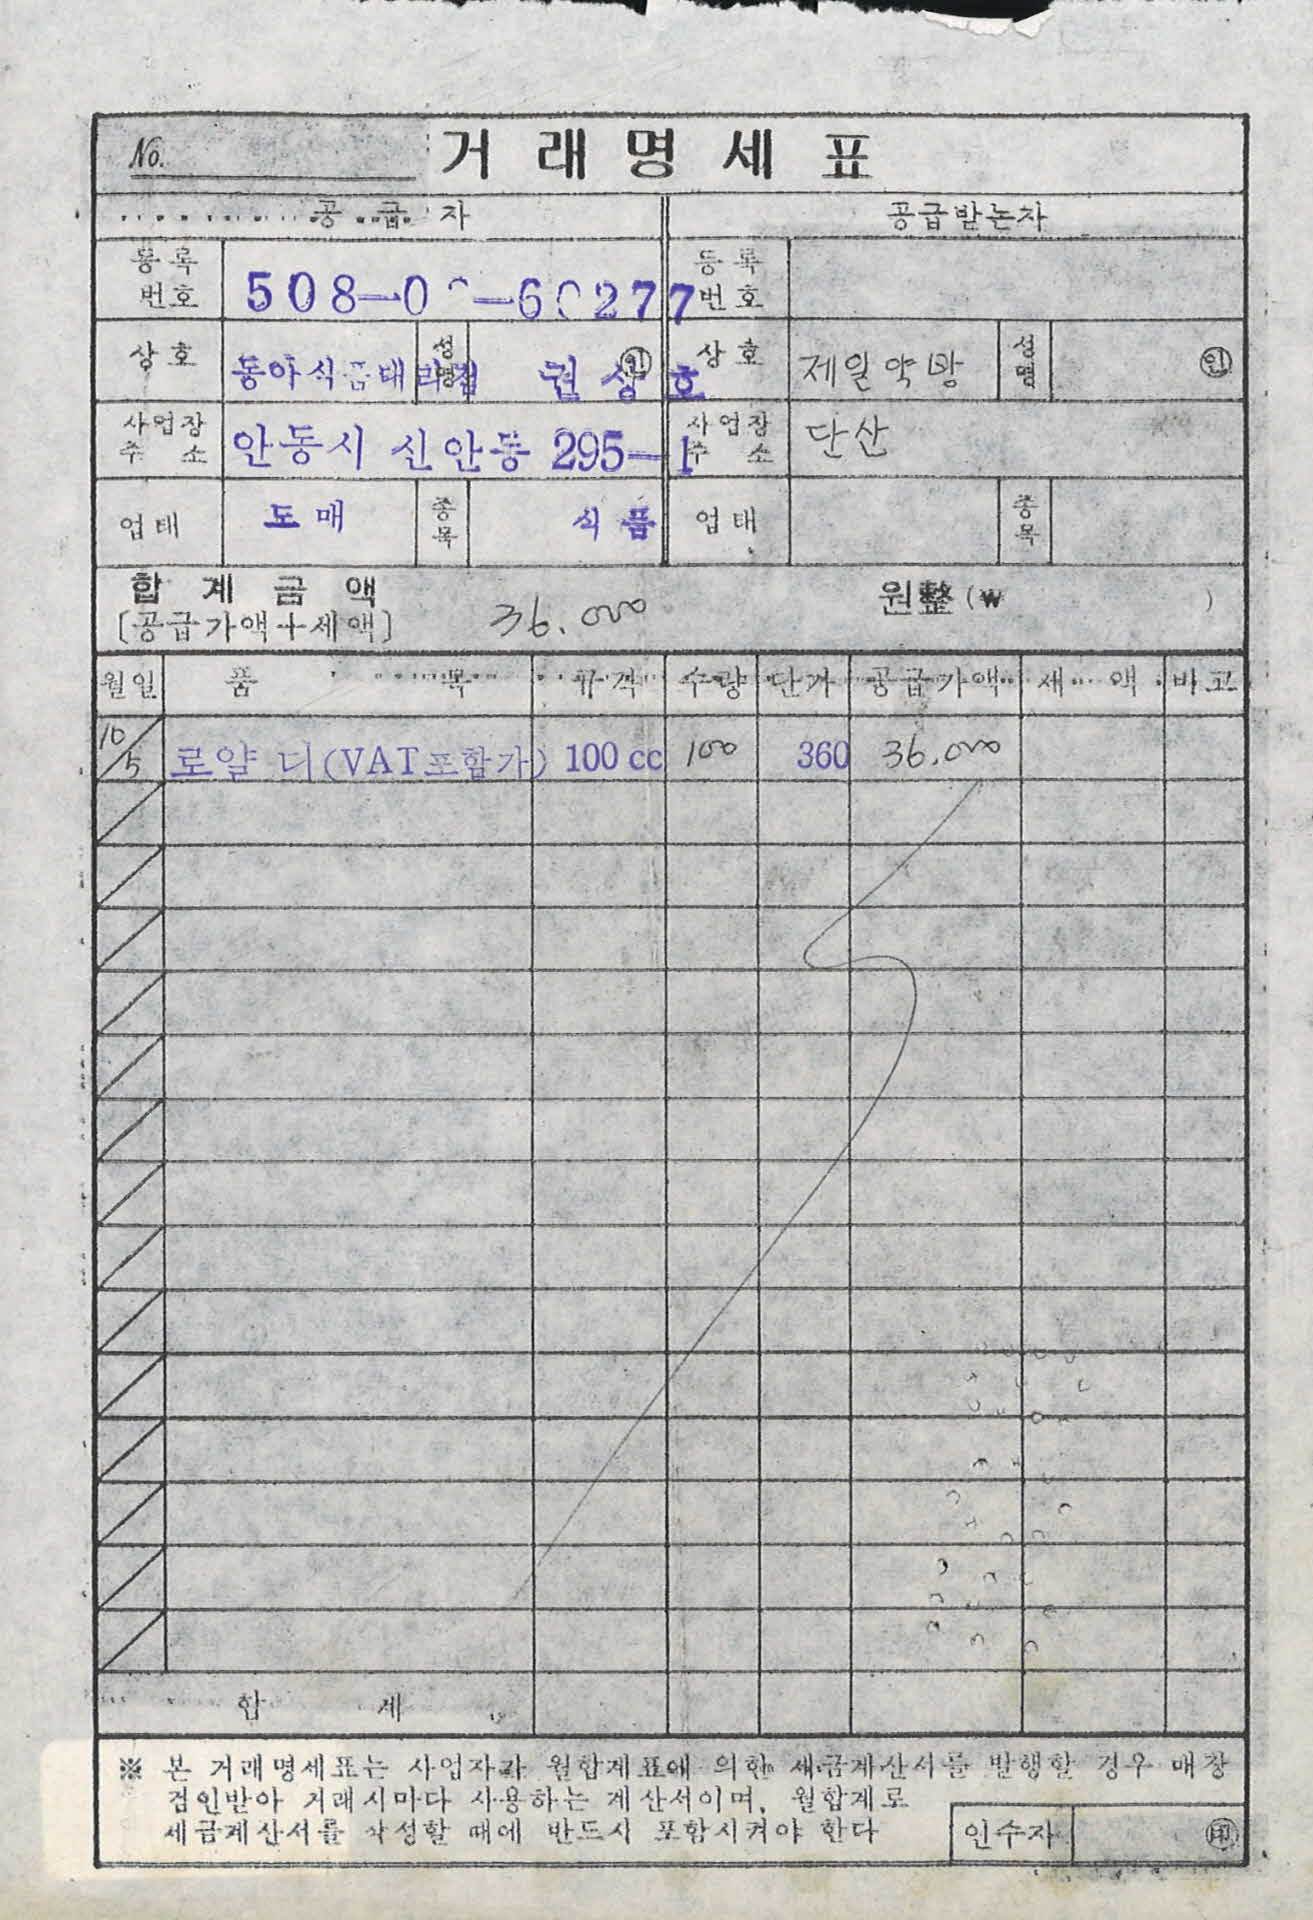 No. 거래명세표
공급자 공급받는자
등록번호 508-0 -60277 등록번호
상호 동아식품대리점 성명 권상호 ㊞ 상호 제일약방 성명 ㊞
사업장주소 안동시 신안동 295-1 사업장주소 단산
업태 도매 종목 식품 업태 종목
합계금액 36.000 원整(₩ )
[공급가액+세액]
월일 품목 규격 수량 단가 공급가액 세액 비고
10/5 로얄 디(VAT포함가) 100 cc 100 360 36.000
합계
※ 본 거래명세표는 사업자가 월합계표에 의한 세금계산서를 발행할 경우 매장
검인받아 거래시마다 사용하는 계산서이며, 월합계로
세금계산서를 작성할 때에 반드시 포함시켜야 한다
인수자 ㊞